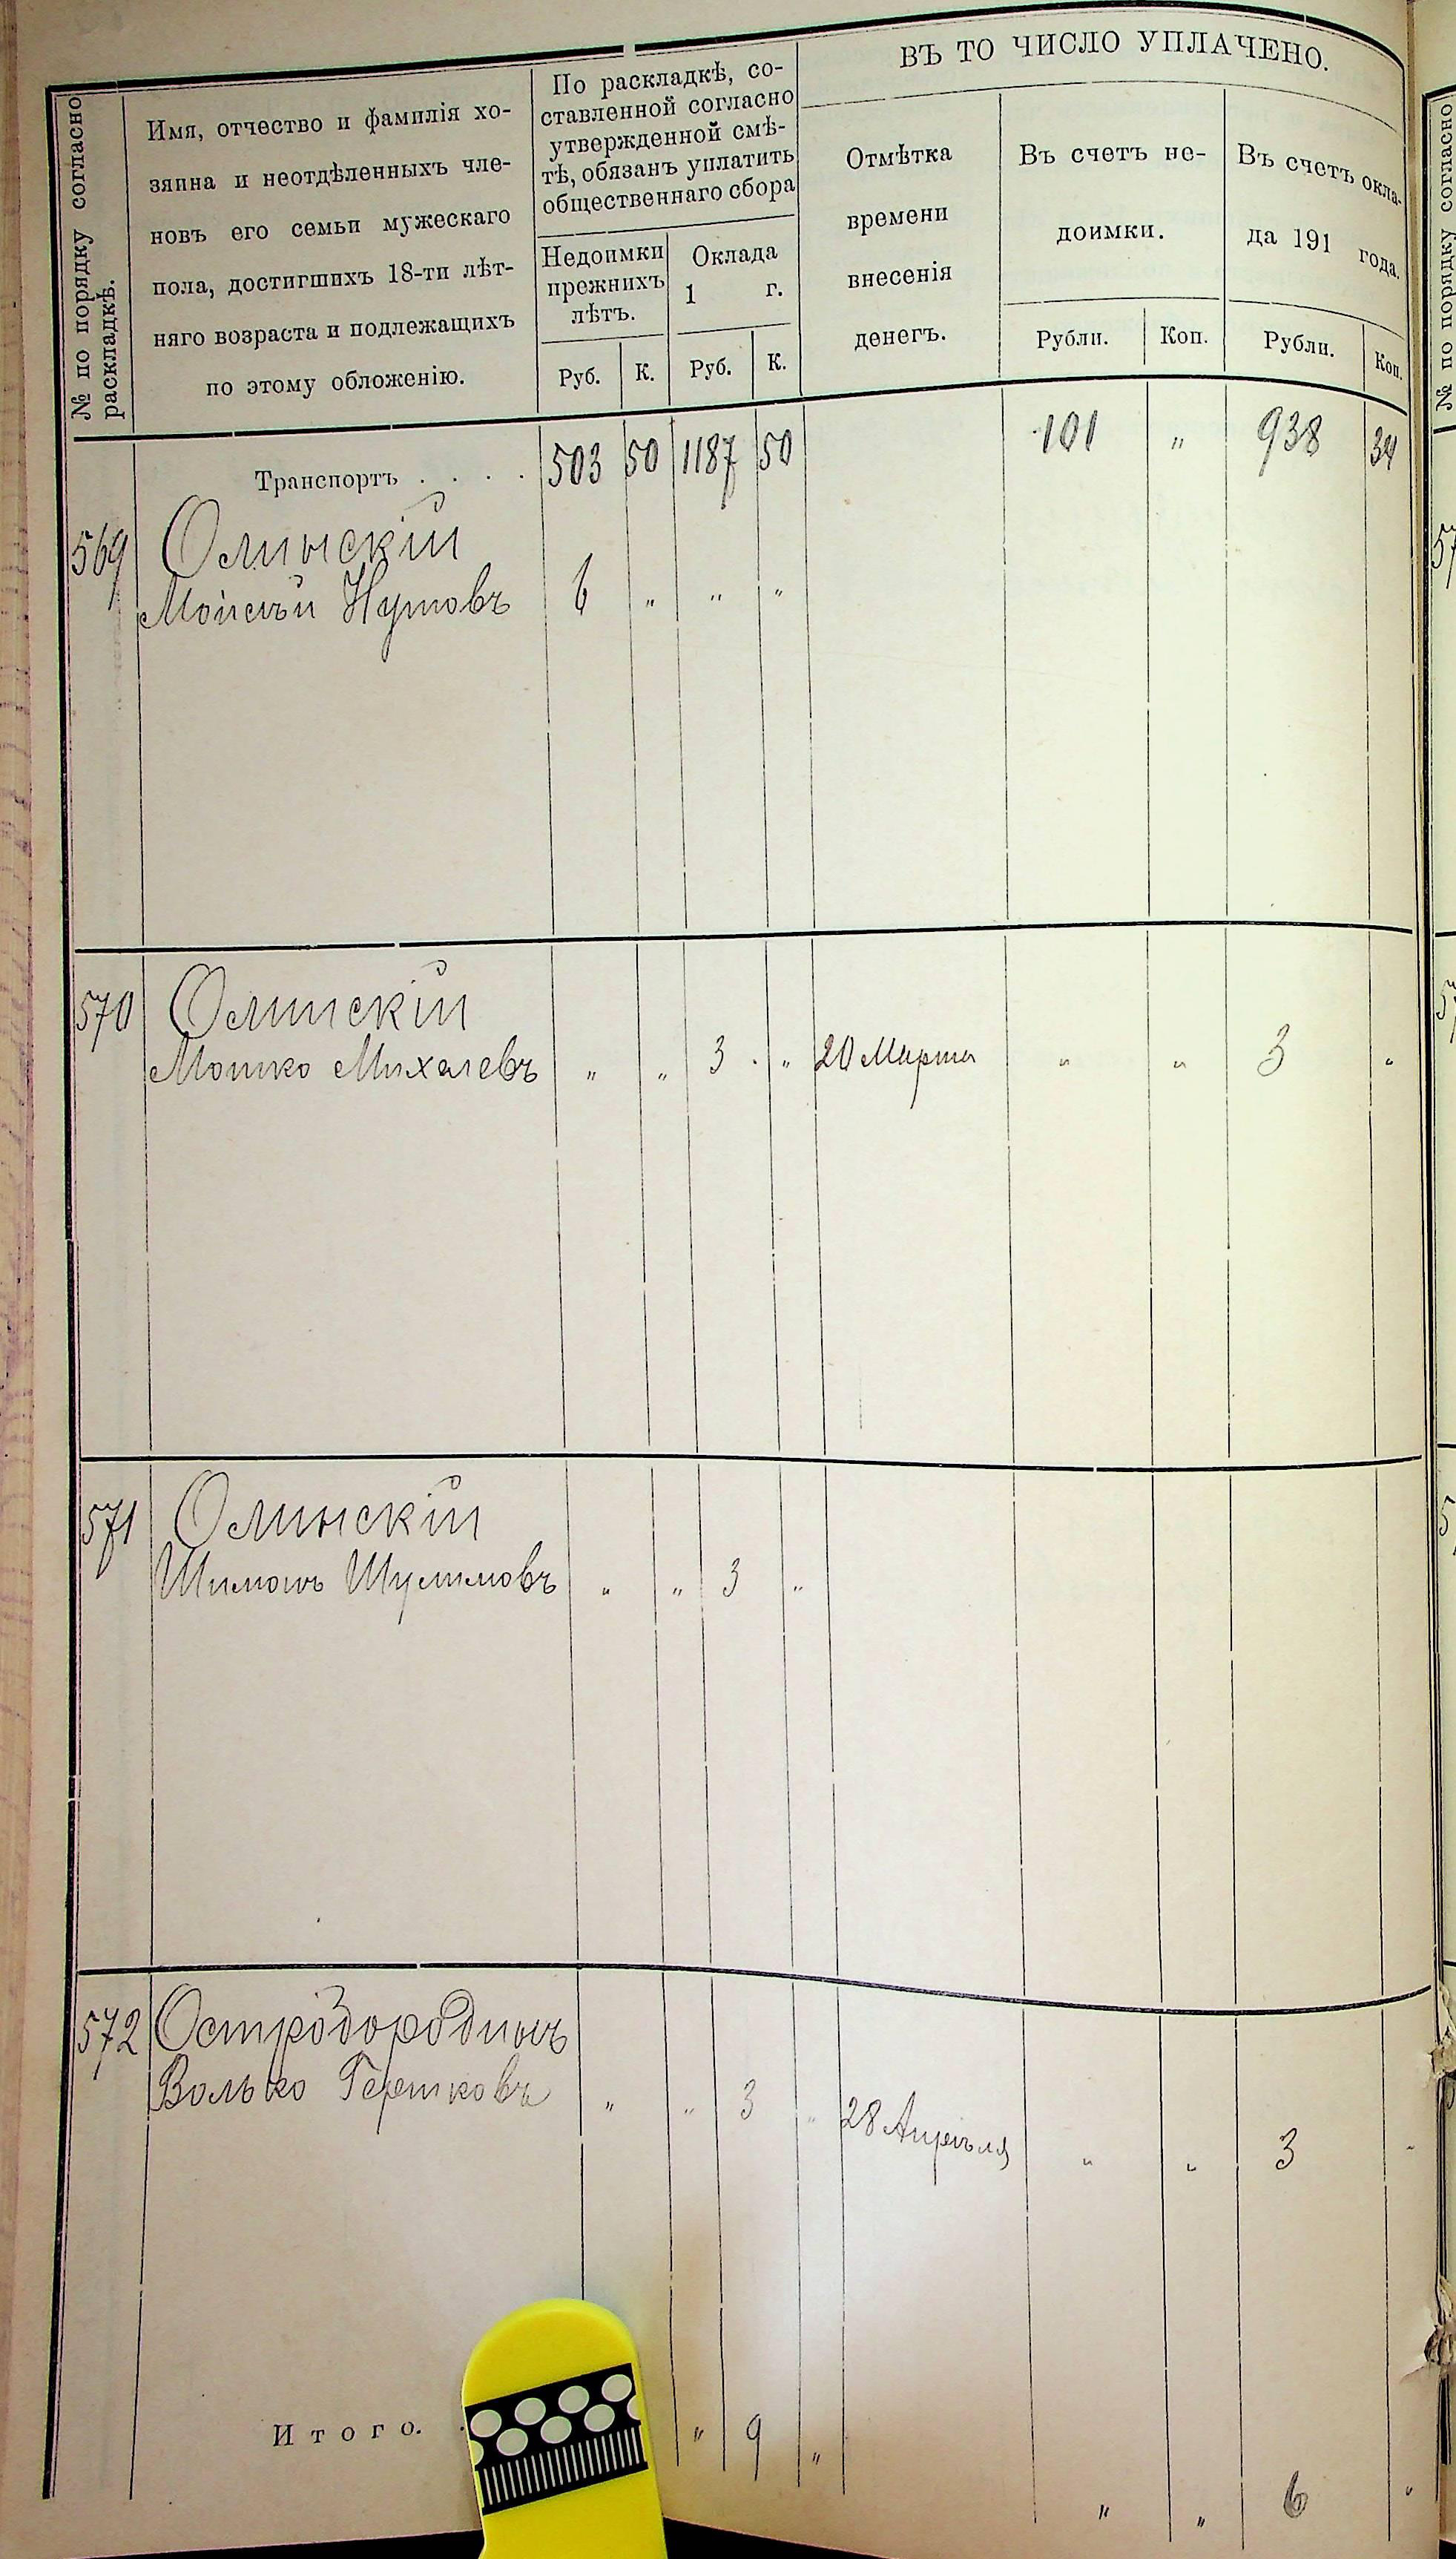 № по порядку согласно
раскладкѣ.
Имя, отчество и фамилія хо-
зяина и неотдѣленныхъ чле-
новъ его семьи мужескаго
пола, достигшихъ 18-ти лѣт-
няго возраста и подлежащихъ
по этому обложенію.
По раскладкѣ, со-
ставленной согласно
утвержденной смѣ-
тѣ, обязанъ уплатить
общественнаго сбора
Недоимки
прежнихъ
лѣтъ.
Оклада
1 г.
Руб. К. Руб. К.
ВЪ ТО ЧИСЛО УПЛАЧЕНО.
Отмѣтка
времени
внесенія
денегъ.
Въ счетъ не-
доимки.
Рубли. Коп.
Въ счетъ окла-
да 191 года.
Рубли. Коп.
Транспортъ . . . . 503 50 1187 50 101 " 938 34
569 Олинскій
Мойсѣй Нутовъ 6 " " "
570 Олинскій
Мошко Михелевъ " " 3 " 20 Марта " " 3 "
571 Олинскій
Шимонъ Шулимовъ " " 3 "
572 Остробородинъ
Волько Гершковъ " " 3 " 28 Апрѣля " " 3 "
Итого. " 9 " " " 6 "
№ по порядку согласно